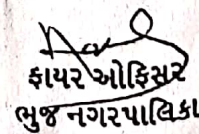 ફાયર ઓફિસર
ભુજ નગરપાલિકા